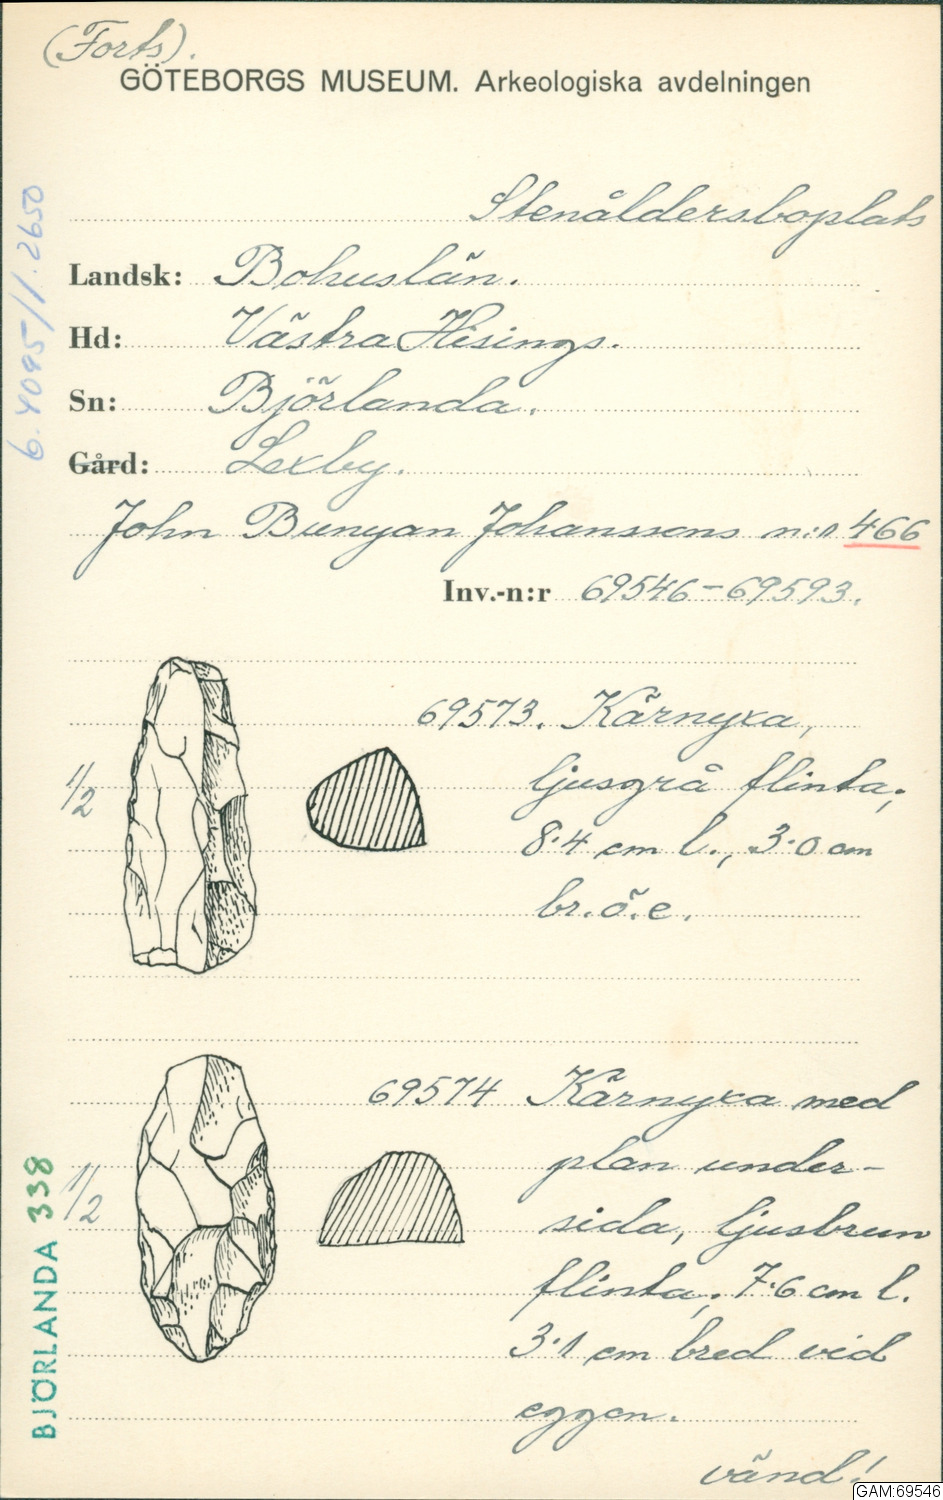 (Forts).
GÖTEBORGS MUSEUM. Arkeologiska avdelningen
Stenåldersboplats
Landsk: Bohuslän.
Hd: Västra Hisings.
Sn: Björlanda.
Gård: Lexby.
John Bunyan Johanssons n:r 466
Inv.-n:r 69546-69593.
69573. Kärnyxa,
1/2
ljusgrå flinta;
8·4 cm l., 3·0 cm
br. ö. e.
69574 Kärnyxa med
plan under-
1/2
sida, ljusbrun
flinta; 7·6 cm l.
3·1 cm bred vid
eggen.
vänd!
6.4095/1.2650
BJÖRLANDA 338
GAM:69546